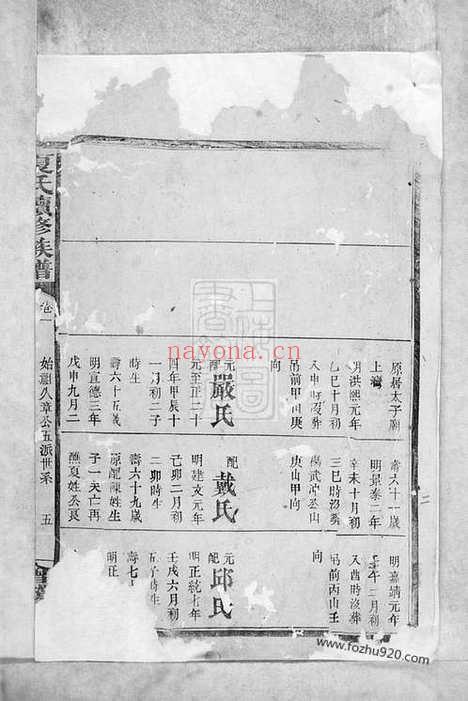 原居太子廟
上灣
明洪熙元年
乙巳十月初
申時沒葬
吊前甲山庚
向
元配嚴氏
元至正二十
四年甲辰十
一月初二子
時生
壽六十五歲
明宣德三年
戊申九月二
壽六十一歲
明景泰二年
辛未十月初
三巳時沒葬
楊武沖公山
庚山甲向
配戴氏
明建文元年
己卯二月初
二卯時生
壽六十九歲
原配陳姓生
子一夭亡再
醮夏姓公艮
明嘉靖元年
午二月初
八酉時沒葬
吊前丙山壬
向
元配邱氏
明正統七年
壬戌六月初
子時生
壽七
明正
夏氏續修族譜
卷一
始祖久章公五派世系
五
nayona.cn
www.fozhu920.com